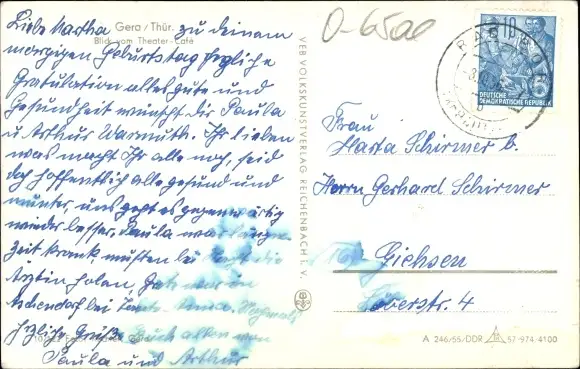 Liebe Martha
Gera / Thür.
Blick vom Theater-Café
zu deinem
morgigen Geburtstag herzliche
Gratulation alles gute und
Gesundheit wünscht dir Paula
u Arthur Warmuth. Ihr lieben
was macht Ihr alle noch, seid
doch hoffentlich alle gesund und
munter, uns geht es gegenwärtig
wieder besser, Paula war lange
Zeit krank, mußten bei Nacht die
Ärztin holen,
herzliche Grüße Euch allen von
Paula und Arthur
VEB VOLKSKUNSTVERLAG REICHENBACH I. V.
O-6500
10
DEUTSCHE
DEMOKRATISCHE REPUBLIK
Frau
Marta Schirmer b.
Herrn Gerhard Schirmer
Giehsen
A 246/55/DDR 57-974 4100